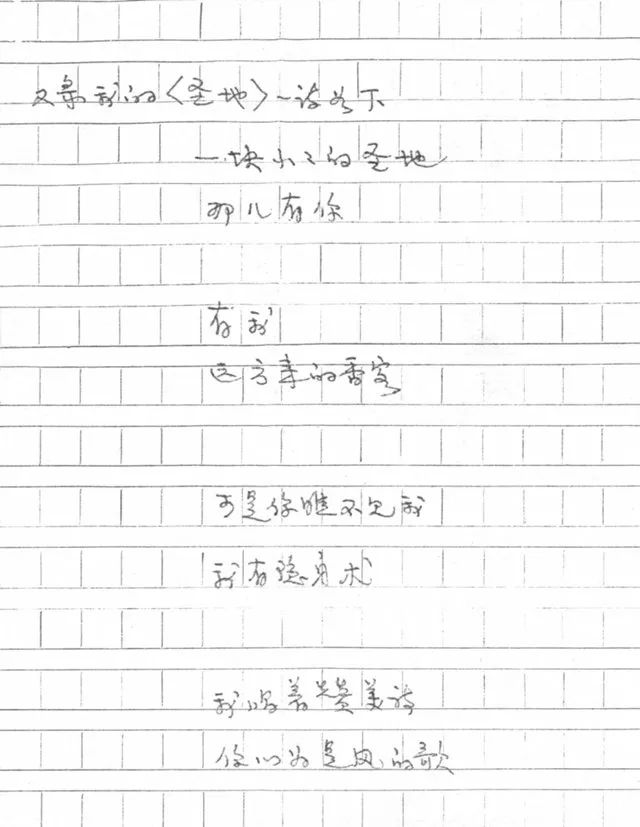 又录我的〈圣地〉一诗如下
一块小〻的圣地
那儿有你
有我
远方来的香客
可是你瞧不见我
我有隐身术
我唱着赞美诗
你以为是风的歌